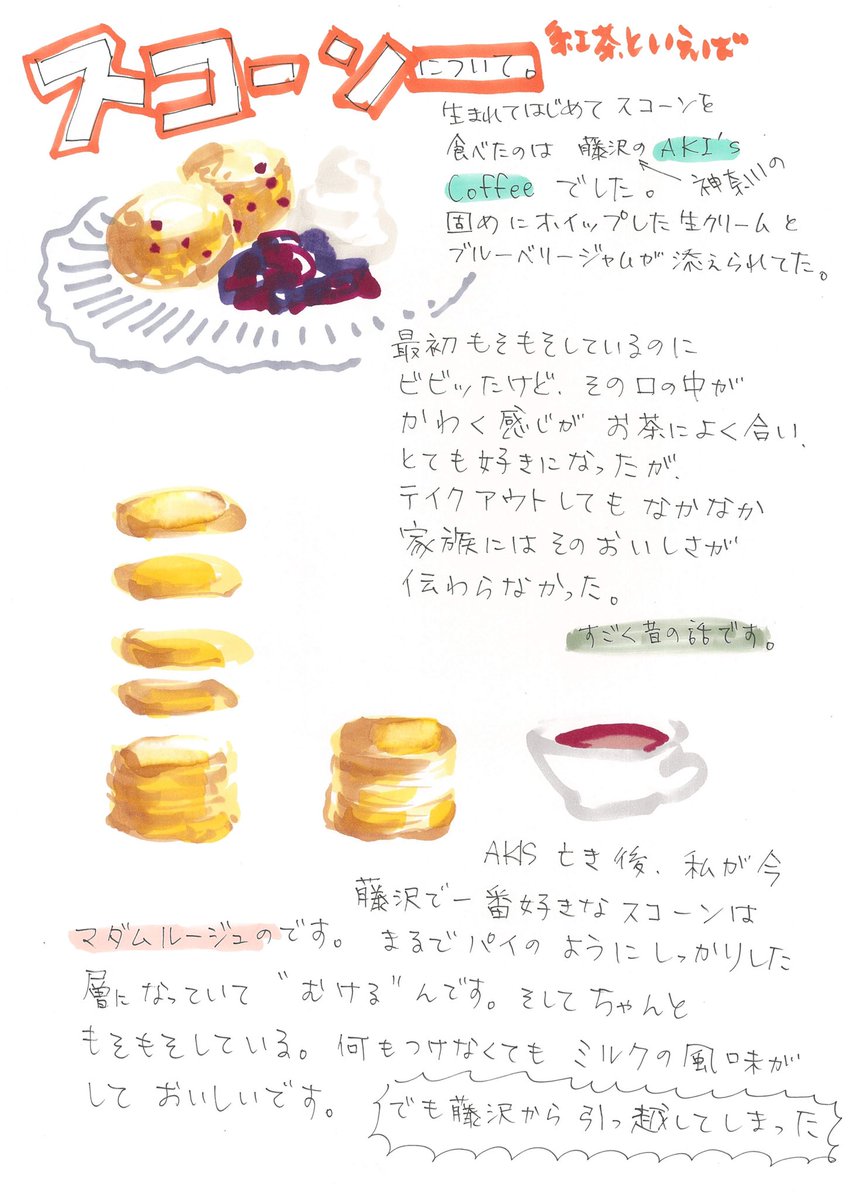 スコーンについて。
紅茶といえば
生まれてはじめてスコーンを
食べたのは 藤沢の AKI's
神奈川の
Coffee でした。
固めにホイップした生クリームと
ブルーベリージャムが添えられてた。
最初もそもそしているのに
ビビッたけど、その口の中が
かわく感じが お茶によく合い、
とても好きになったが、
テイクアウトしても なかなか
家族には そのおいしさが
伝わらなかった。
すごく昔の話です。
AKIS 亡き後、私が今
藤沢で一番好きなスコーンは
マダムルージュのです。まるでパイのようにしっかりした
層になっていて "むける"んです。そしてちゃんと
もそもそしている。何もつけなくてもミルクの風味が
して おいしいです。
でも藤沢から引っ越してしまった